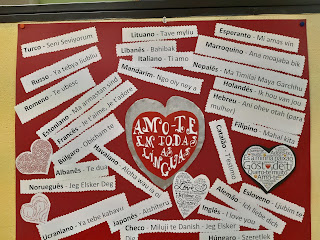 Turco - Seni Seviyorum
Russo - Ya tebya liubliu
Romeno - Te ubesc
Estoniano - Ma armastan sind
Francês - Je t'aime, Je t'adore
Búlgaro - Obicham te
Albanês - Te dua
Norueguês - Jeg Elsker Deg
Ucraniano - Ya tebe kahavu
Lituano - Tave myliu
Libanês - Bahibak
Italiano - Ti amo
Mandarim - Ngo oiy ney a
AMO-TE
EM TODAS
AS
LÍNGUAS
Havaiano - Aloha wau ia oi
Japonês - Aishiteru
Checo - Miluji te
Danish - Jeg Elsker
Esperanto - Mi amas vin
Marroquino - Ana moajaba bik
Nepalês - Ma Timilai Maya Garchhu
Holandês - Ik hou van jou
Hebreu - Ani ohev otah (para mulher)
Filipino - Mahal kita
Esloveno - Ljubim te
Alemão - Ich liebe dich
Inglês - I love you
Húngaro - Szeretlek